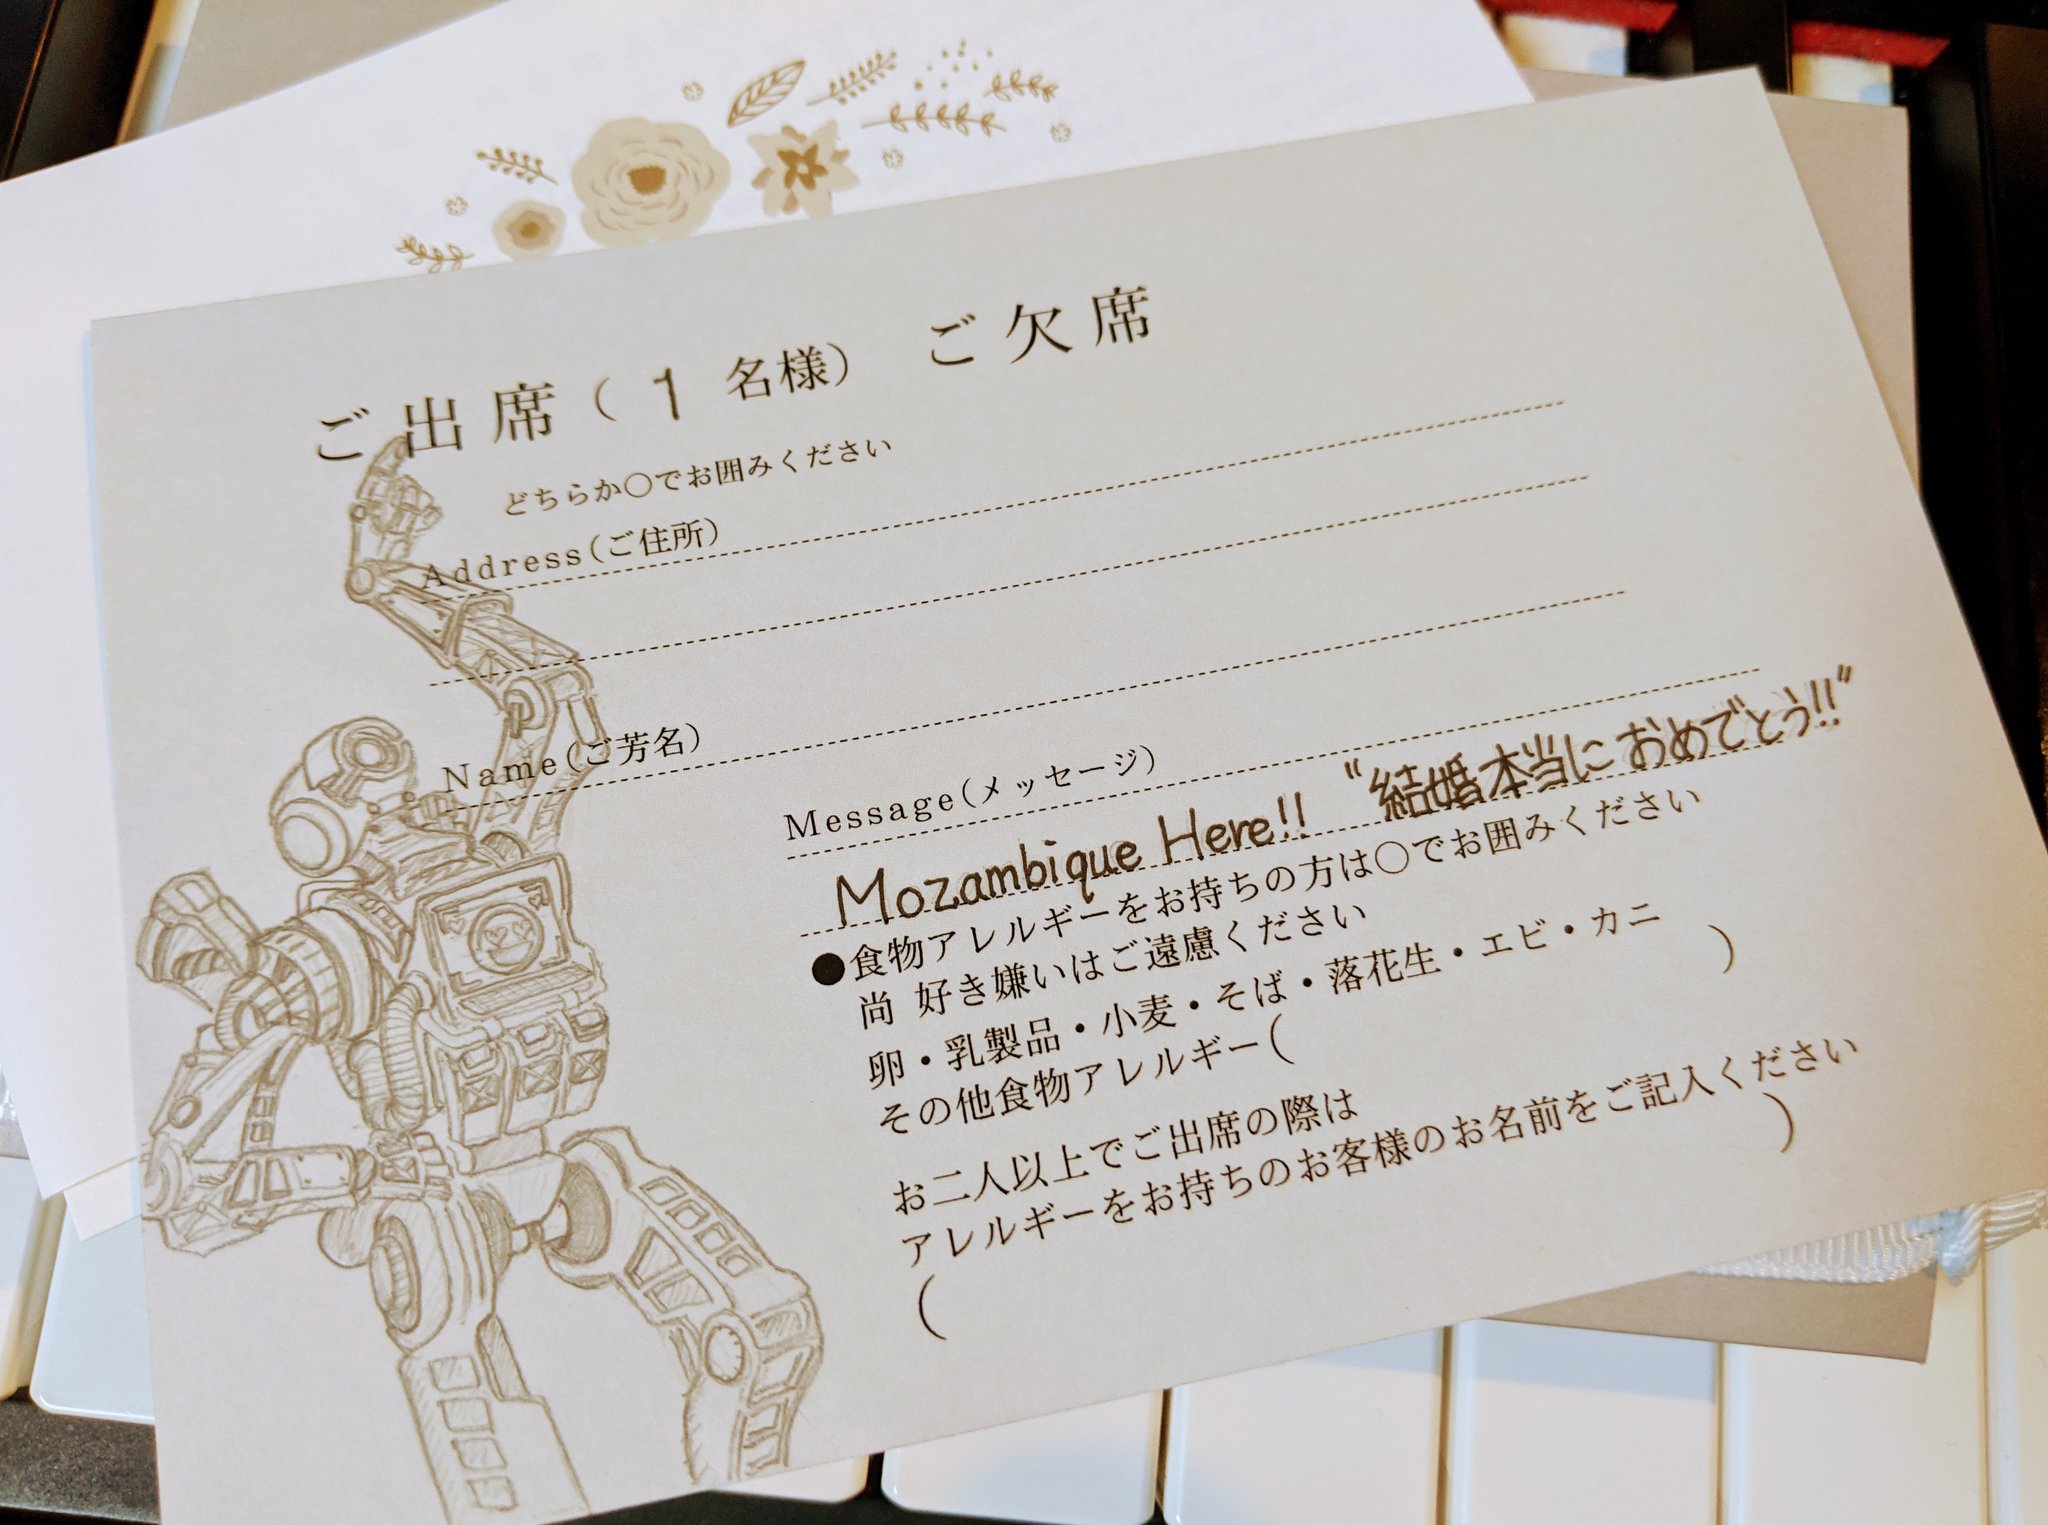 ご出席（ 1 名様） ご欠席
どちらか○でお囲みください
Address(ご住所)
Name(ご芳名)
Message(メッセージ)
Mozambique Here!! "結婚本当におめでとう!!"
●食物アレルギーをお持ちの方は○でお囲みください
尚 好き嫌いはご遠慮ください
卵・乳製品・小麦・そば・落花生・エビ・カニ
その他食物アレルギー( )
お二人以上でご出席の際は
アレルギーをお持ちのお客様のお名前をご記入ください
( )